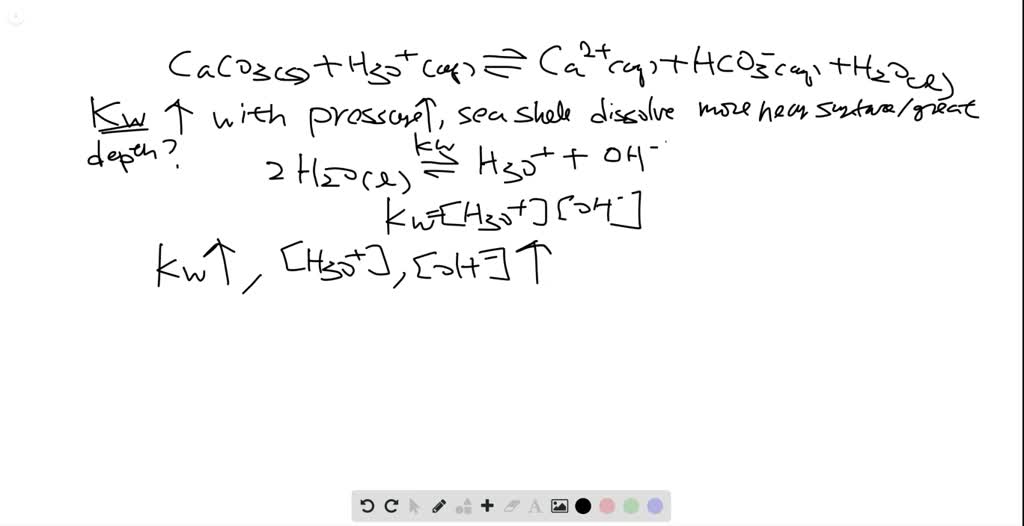 CaCO3(s) + H3O+(aq) ⇌ Ca2+(aq) + HCO3-(aq) + H2O(l)
Kw ↑ with pressure↑, sea shele dissolve more near surface/great
depth?
2H2O(l) ⇌ Kw H3O+ + OH-
Kw=[H3O+][OH-]
Kw↑, [H3O+], [OH-]↑
A